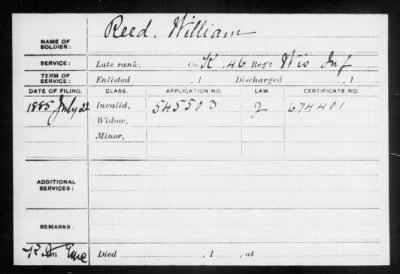 NAME OF SOLDIER: Reed, William
SERVICE: Late rank, Co. K, 46 Reg't Wis Inf
TERM OF SERVICE: Enlisted , 1 Discharged , 1
DATE OF FILING. CLASS. APPLICATION NO. LAW. CERTIFICATE NO.
1885 July 22 Invalid, 545503 2 674401
Widow,
Minor,
ADDITIONAL SERVICES:
REMARKS:
Died , 1 , at